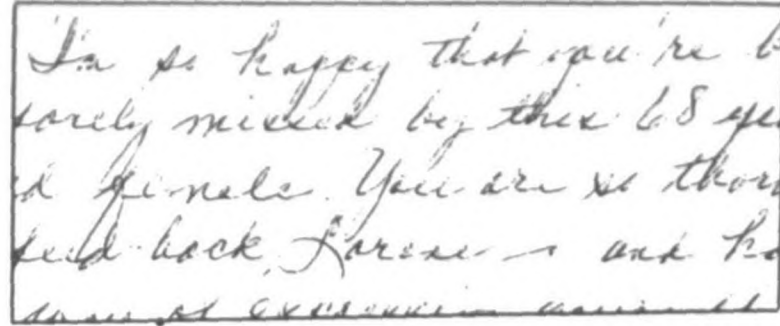 I'm so happy that you're b
sorely missed by this 68 ye
d female. You are so thor
feed back, and h